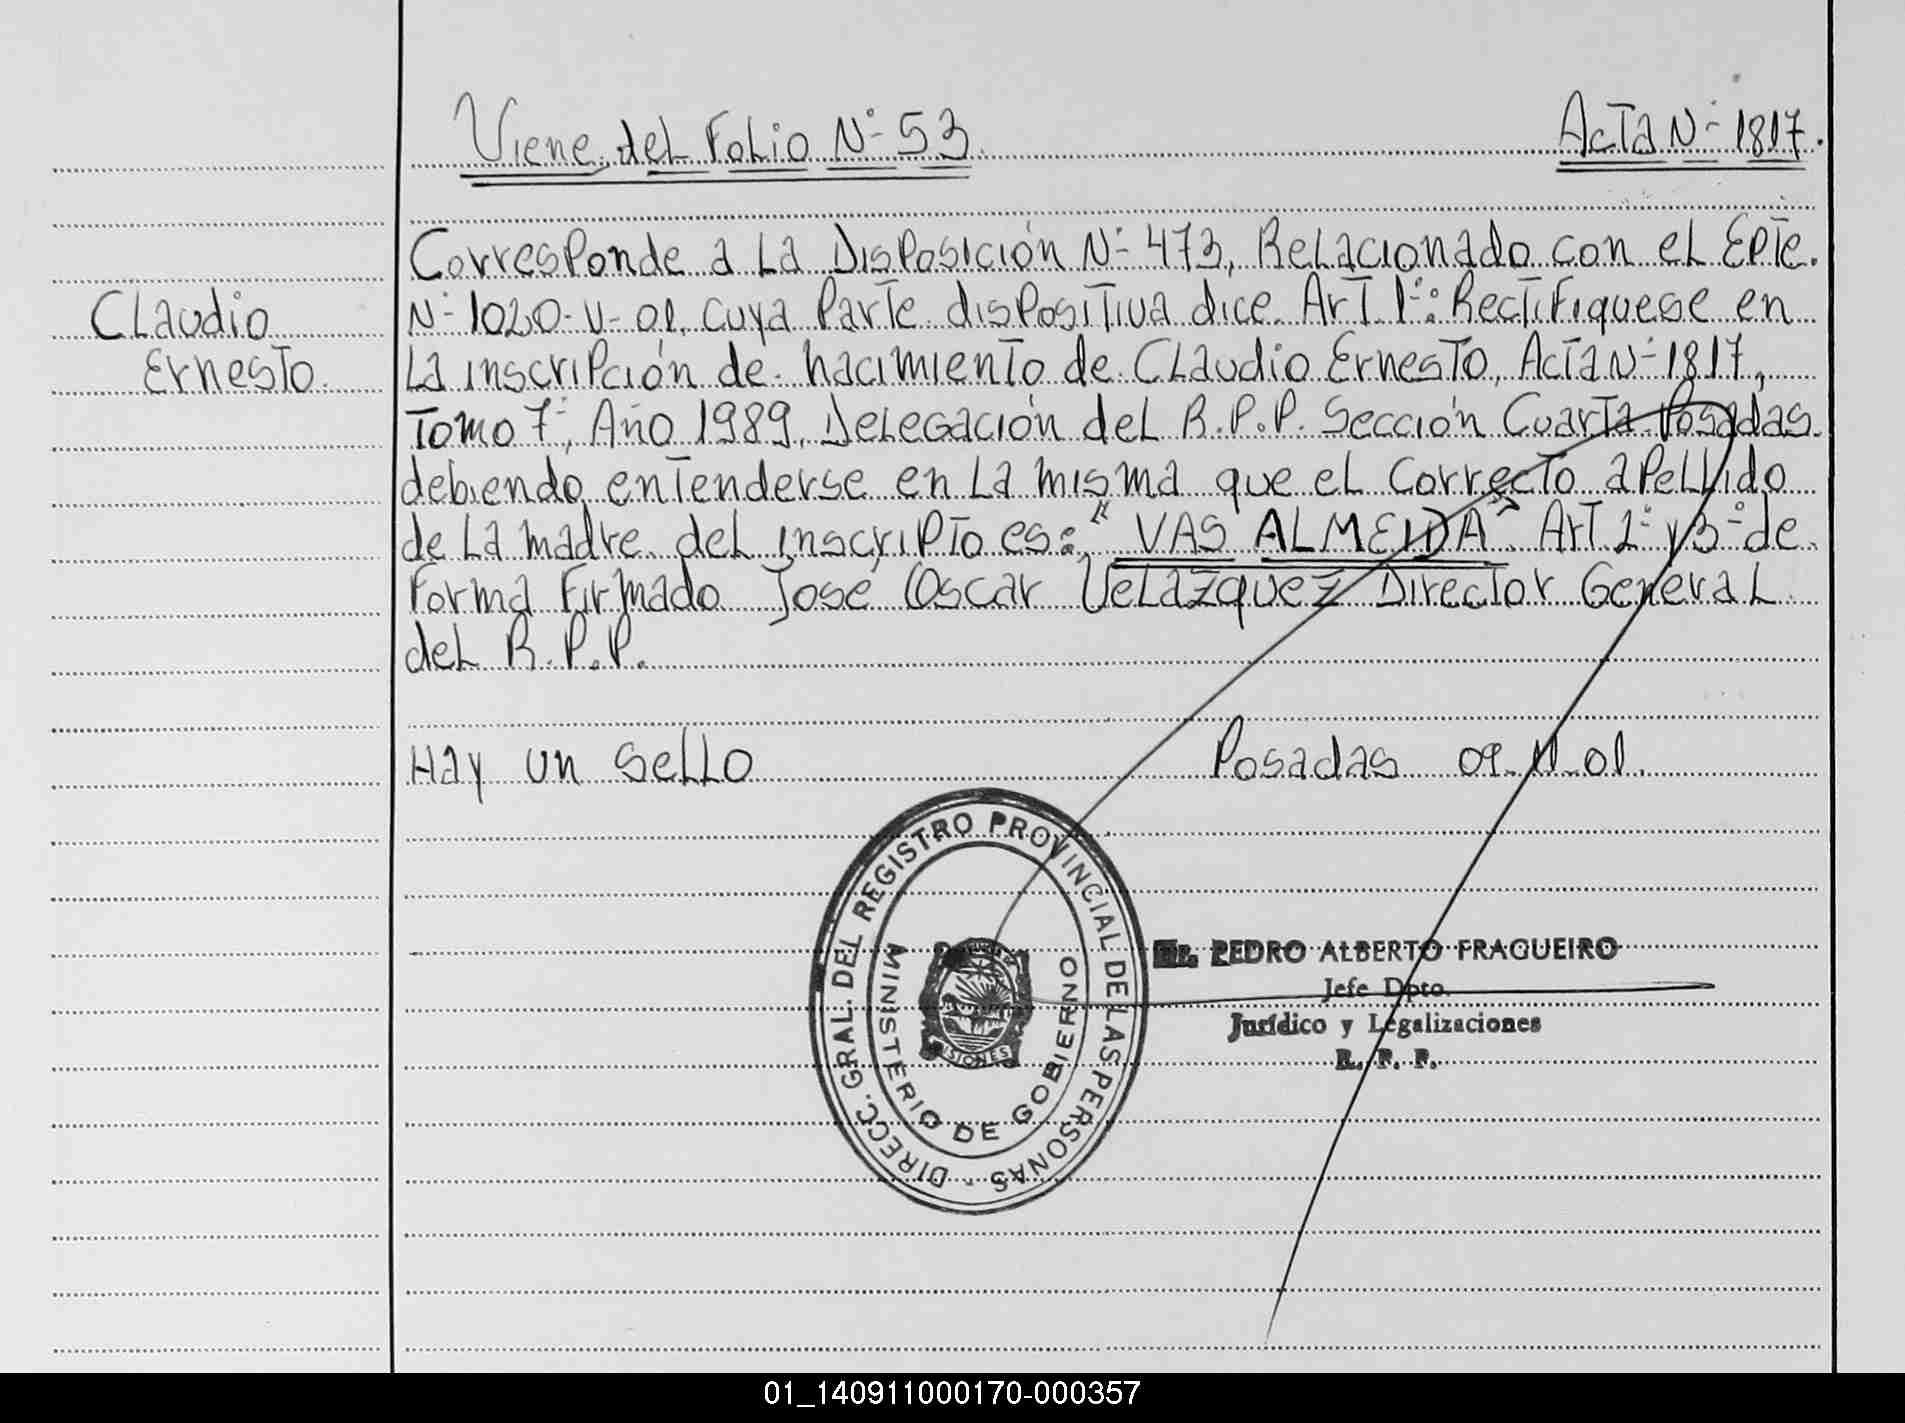 Viene del Folio Nº 53
Acta Nº 1817.
Corresponde a la Disposición Nº 473, Relacionado con el Epte.
Claudio
Nº 1020-V-01, cuya Parte dispositiva dice Art. 1º: Rectifiquese en
Ernesto.
la inscripción de nacimiento de Claudio Ernesto, Acta Nº 1817,
Tomo 7º, Año 1989, Delegación del R.P.P. Sección Cuarta Posadas.
debiendo entenderse en la misma que el Correcto apellido
de la madre del inscripto es: "VAS ALMEIDA" Art. 2º y 3º de
Forma Firmado José Oscar Velazquez Director General
del R.P.P.
Hay un sello
Posadas 09-11-01.
DIRECC. GRAL. DEL REGISTRO PROVINCIAL DE LAS PERSONAS
MINISTERIO DE GOBIERNO
MISIONES
PEDRO ALBERTO FRAGUEIRO
Jefe Dpto.
Jurídico y Legalizaciones
R. P. P.
01_140911000170-000357